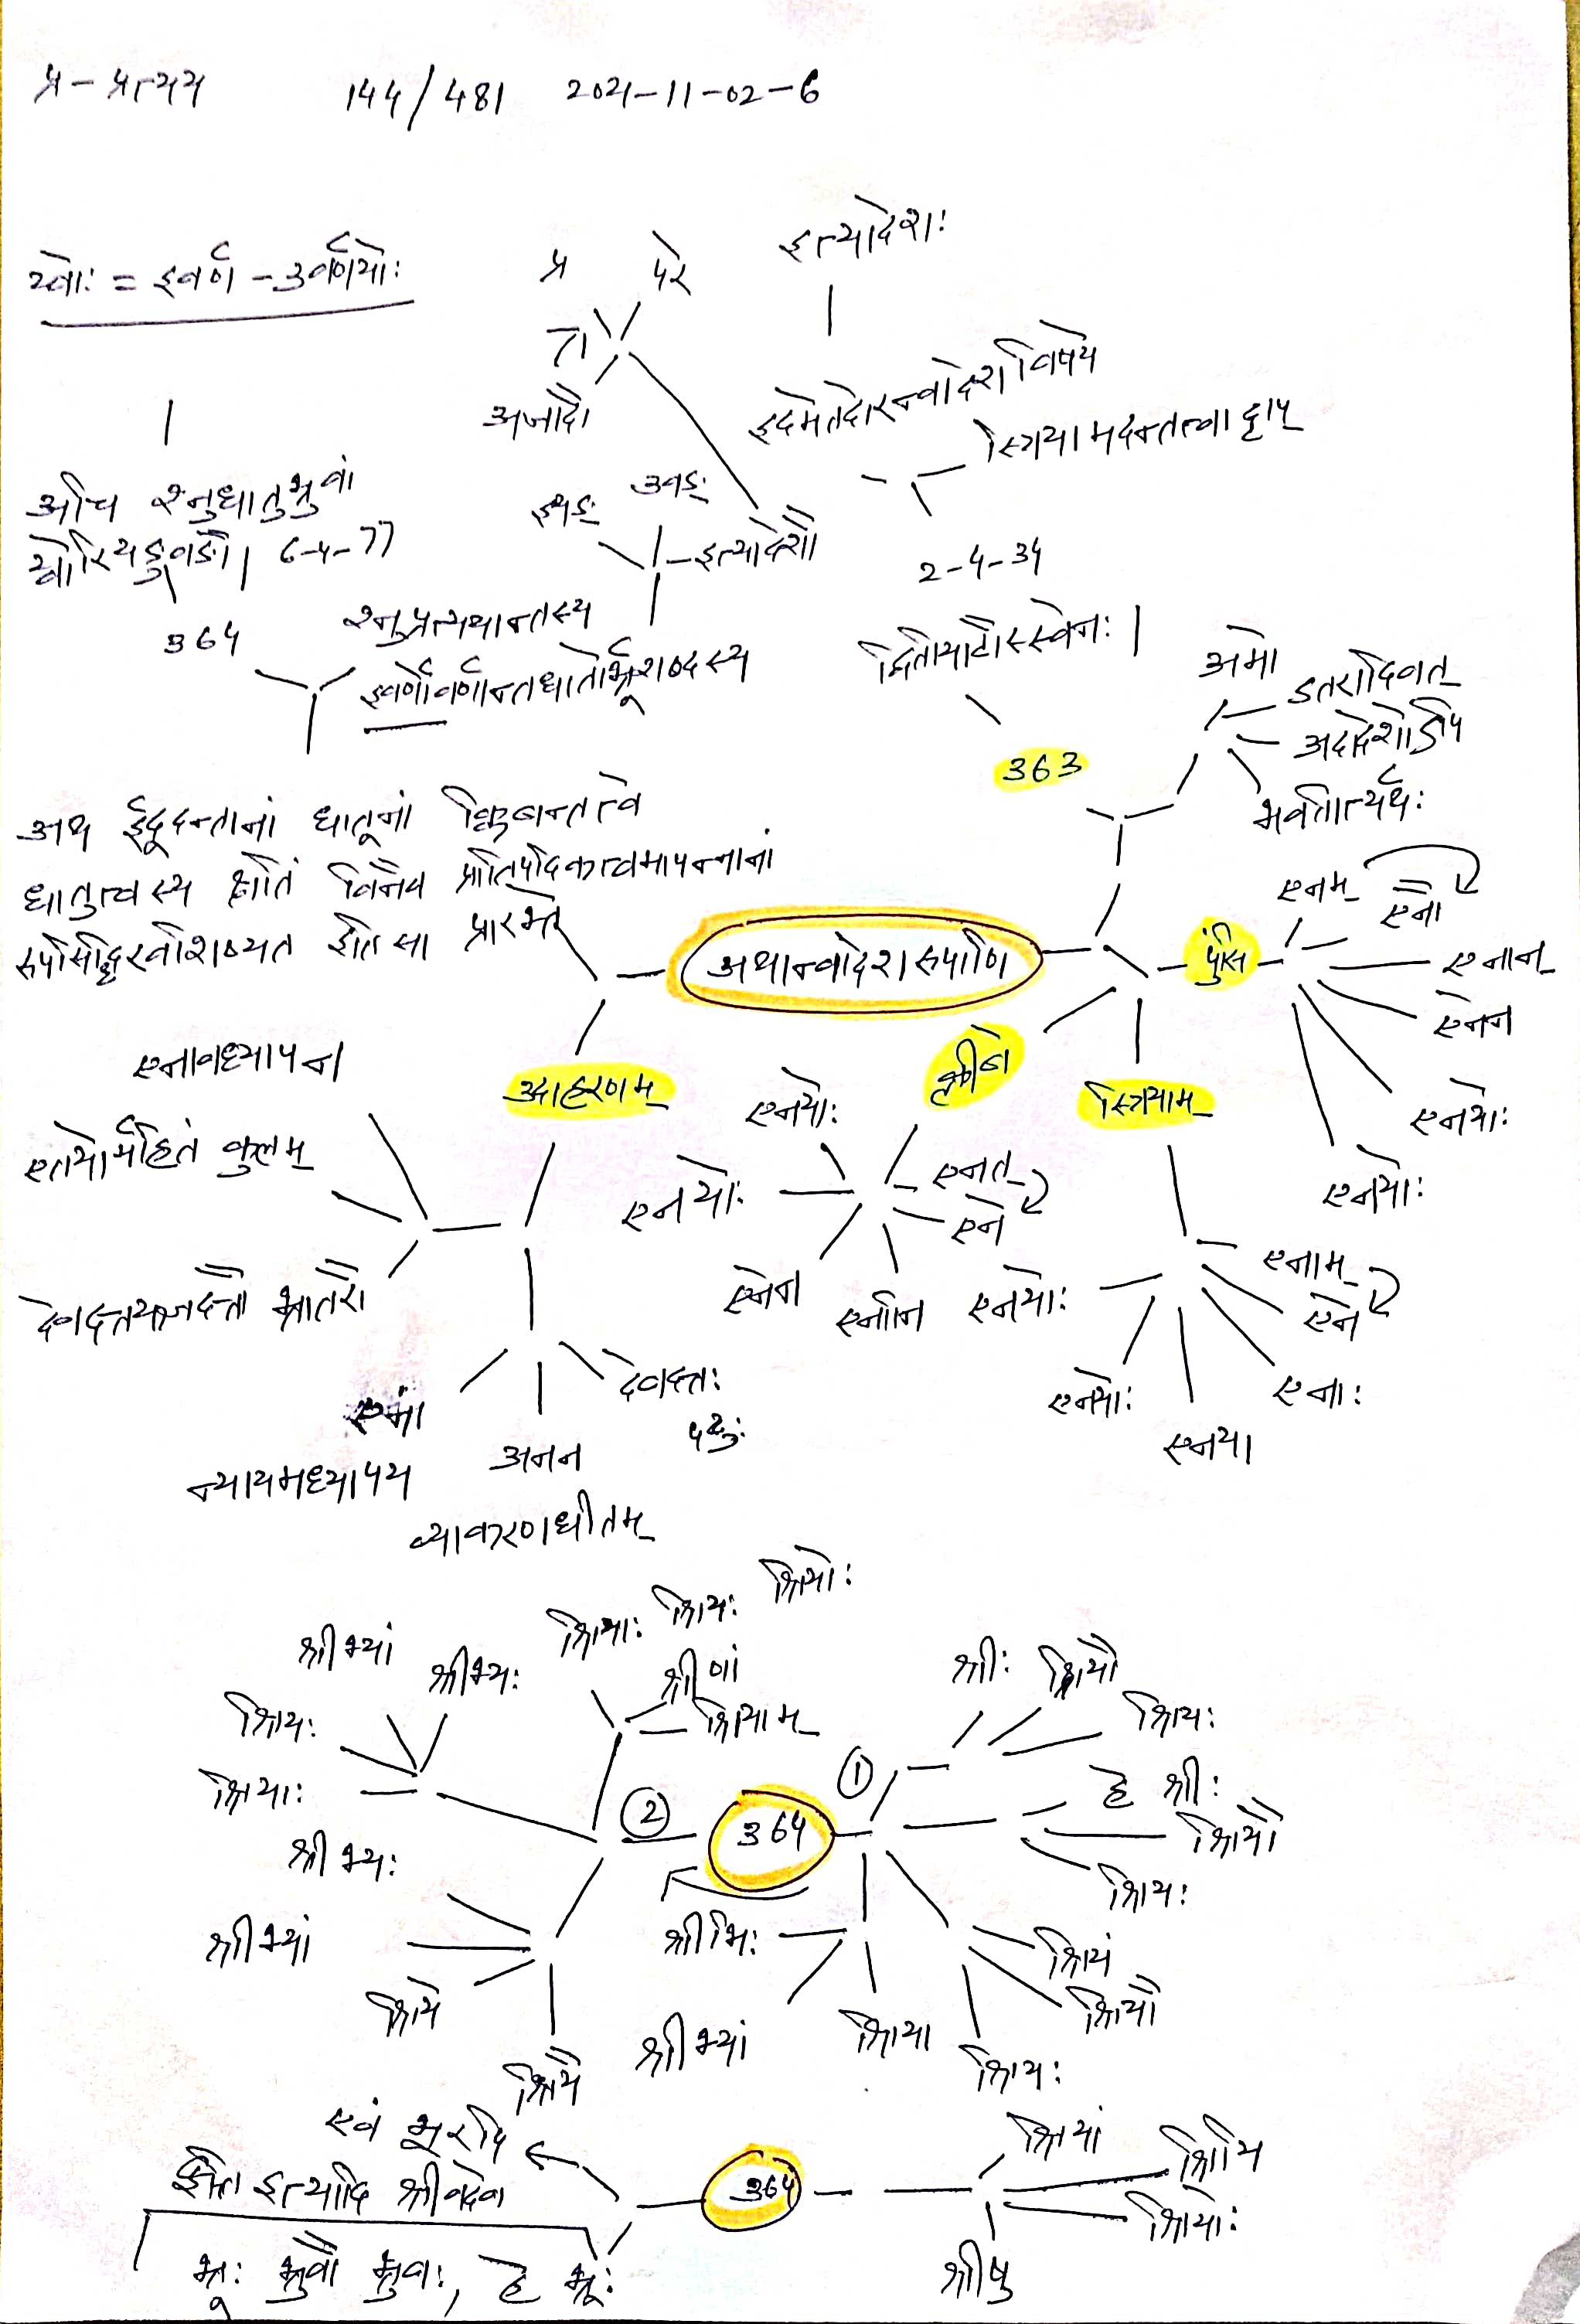 प्र - प्रत्यय 144/481 2021-11-02-6
य्वोः = इवर्ण - उवर्णयोः
प्र परे
इत्यादेशः
अजादौ
इदमेतदोरन्वादेशविषये
स्त्रियामदन्तत्वाट्टाप्
अचि श्नुधातुभ्रुवां
य्वोरियङुवङौ। 6-4-77
इयङ् उवङ्
इत्यादेशौ
2-4-34
364
श्नुप्रत्ययान्तस्य
इवर्णोवर्णान्तधातोर्भ्रूशब्दस्य
द्वितीयाटौस्स्वेनः।
अमो
डतरादिवत्
अदादेशोऽपि
भवतीत्यर्थः
363
अथ ईदूदन्तानां धातूनां क्विबन्तत्वे
धातुत्वस्य क्षतिं विनैव प्रातिपदिकत्वमापन्नानां
रूपसिद्धिरवशिष्यत इति सा प्रारभ्यते
अथान्वादेशरूपाणि
पुंसि
एनम्
एनौ
एनान्
एनेन
एनयोः
एनयोः
क्लीबे
स्त्रियाम्
उदाहरणम्
एनावध्यापन
एतयोर्महितं कुलम्
देवदत्तयज्ञदत्तौ भ्रातरौ
एनयोः
एनयोः
एनत्
एने
एनेन
एनानि
एनयोः
एनाम्
एने
एनयोः
एनया
एनाः
न्यायमध्यापय
अनेन
व्याकरणाधीतम्
देवदत्तः
पटुः
श्रीभ्यां
श्रीभ्यः
श्रियाः श्रियः श्रियोः
श्रीणां
श्रियाम्
श्रीः श्रियौ
श्रियः
श्रियः
श्रियाः
② 364 ①
हे श्रीः
श्रियौ
श्रियः
श्रीभ्यः
श्रीभ्यां
श्रिये
श्रियै
श्रीभिः
श्रीभ्यां
श्रिया
श्रियं
श्रियौ
श्रियः
एवं भ्रूरपि
इति इत्यादि श्रीवदेव
364
श्रियां
श्रियि
श्रियोः
श्रीषु
भ्रूः भ्रुवौ भ्रुवः, हे भ्रूः